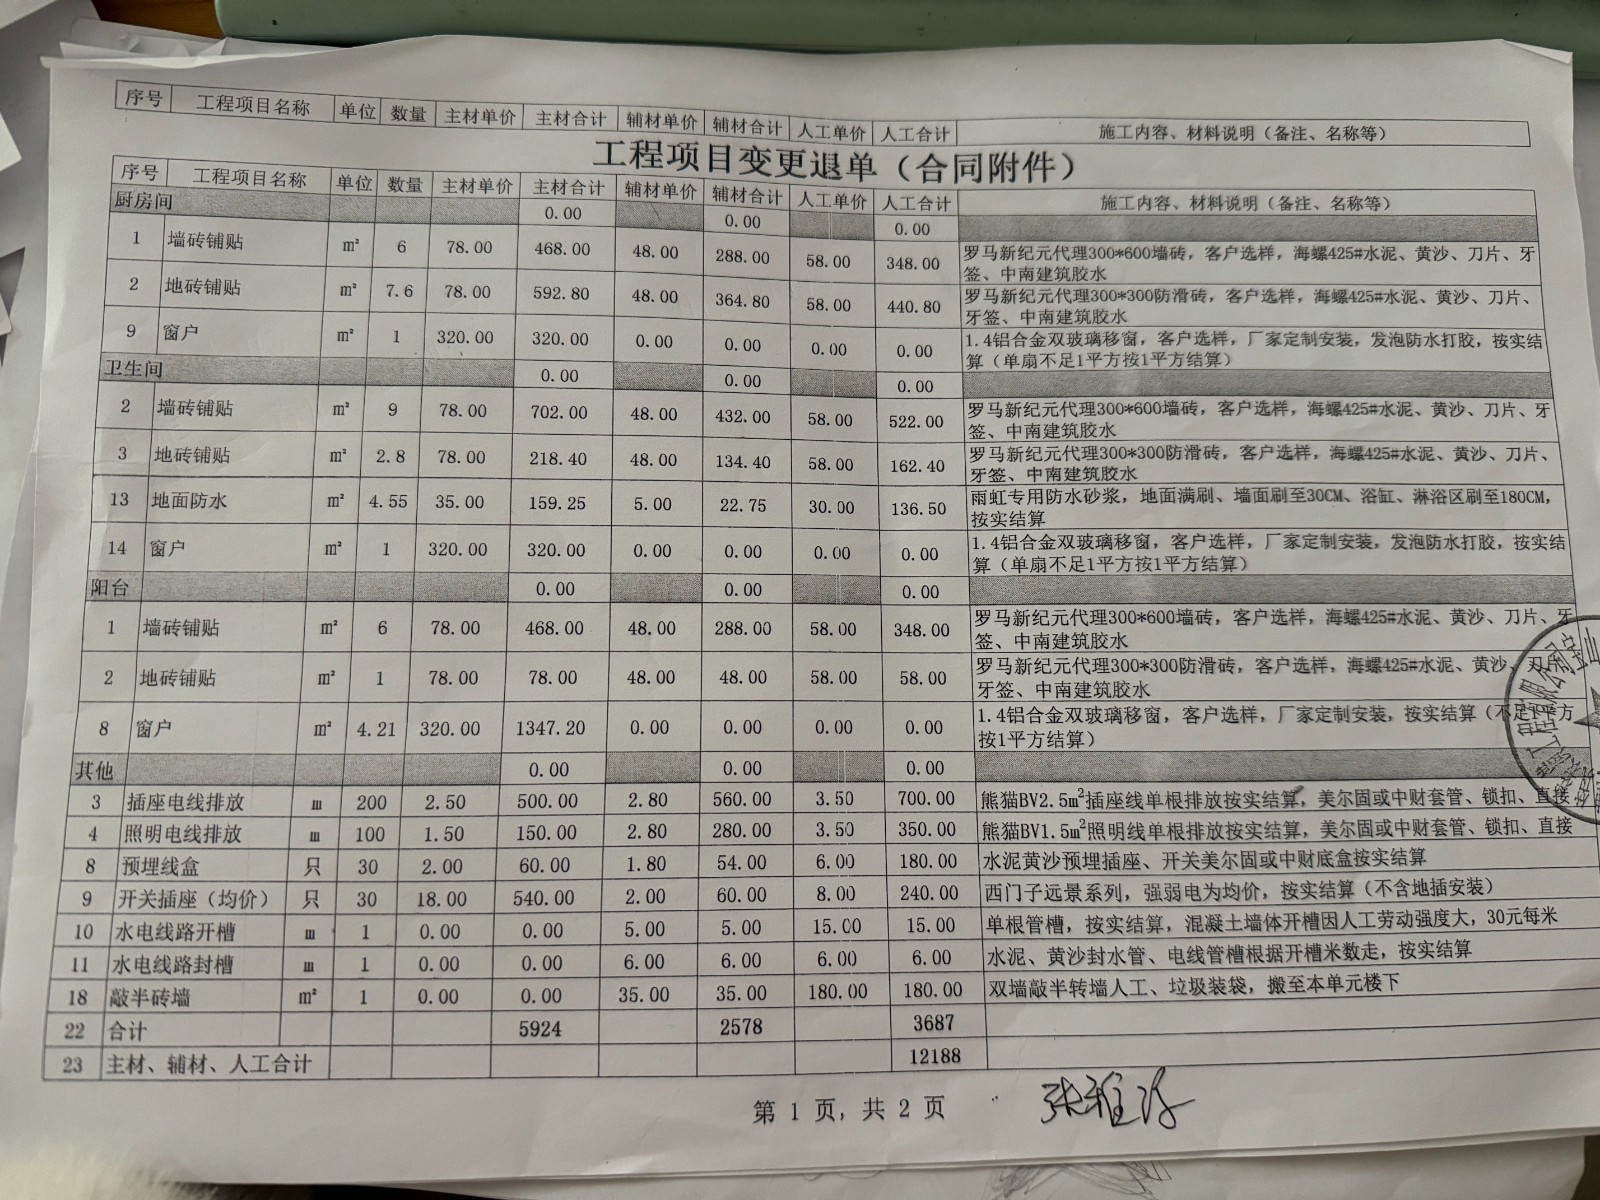 序号 工程项目名称 单位 数量 主材单价 主材合计 辅材单价 辅材合计 人工单价 人工合计 施工内容、材料说明（备注、名称等）
工程项目变更退单（合同附件）
序号 工程项目名称 单位 数量 主材单价 主材合计 辅材单价 辅材合计 人工单价 人工合计 施工内容、材料说明（备注、名称等）
厨房间 0.00 0.00 0.00
1 墙砖铺贴 m² 6 78.00 468.00 48.00 288.00 58.00 348.00 罗马新纪元代理300*600墙砖，客户选样，海螺425#水泥、黄沙、刀片、牙
签、中南建筑胶水
2 地砖铺贴 m² 7.6 78.00 592.80 48.00 364.80 58.00 440.80 罗马新纪元代理300*300防滑砖，客户选样，海螺425#水泥、黄沙、刀片、
牙签、中南建筑胶水
9 窗户 m² 1 320.00 320.00 0.00 0.00 0.00 0.00 1.4铝合金双玻璃移窗，客户选样，厂家定制安装，发泡防水打胶，按实结
算（单扇不足1平方按1平方结算）
卫生间 0.00 0.00 0.00
2 墙砖铺贴 m² 9 78.00 702.00 48.00 432.00 58.00 522.00 罗马新纪元代理300*600墙砖，客户选样，海螺425#水泥、黄沙、刀片、牙
签、中南建筑胶水
3 地砖铺贴 m² 2.8 78.00 218.40 48.00 134.40 58.00 162.40 罗马新纪元代理300*300防滑砖，客户选样，海螺425#水泥、黄沙、刀片、
牙签、中南建筑胶水
13 地面防水 m² 4.55 35.00 159.25 5.00 22.75 30.00 136.50 雨虹专用防水砂浆，地面满刷、墙面刷至30CM、浴缸、淋浴区刷至180CM，
按实结算
14 窗户 m² 1 320.00 320.00 0.00 0.00 0.00 0.00 1.4铝合金双玻璃移窗，客户选样，厂家定制安装，发泡防水打胶，按实结
算（单扇不足1平方按1平方结算）
阳台 0.00 0.00 0.00
1 墙砖铺贴 m² 6 78.00 468.00 48.00 288.00 58.00 348.00 罗马新纪元代理300*600墙砖，客户选样，海螺425#水泥、黄沙、刀片、牙
签、中南建筑胶水
2 地砖铺贴 m² 1 78.00 78.00 48.00 48.00 58.00 58.00 罗马新纪元代理300*300防滑砖，客户选样，海螺425#水泥、黄沙、刀片、
牙签、中南建筑胶水
8 窗户 m² 4.21 320.00 1347.20 0.00 0.00 0.00 0.00 1.4铝合金双玻璃移窗，客户选样，厂家定制安装，按实结算（不足1平方
按1平方结算）
其他 0.00 0.00 0.00
3 插座电线排放 m 200 2.50 500.00 2.80 560.00 3.50 700.00 熊猫BV2.5m²插座线单根排放按实结算，美尔固或中财套管、锁扣、直接
4 照明电线排放 m 100 1.50 150.00 2.80 280.00 3.50 350.00 熊猫BV1.5m²照明线单根排放按实结算，美尔固或中财套管、锁扣、直接
8 预埋线盒 只 30 2.00 60.00 1.80 54.00 6.00 180.00 水泥黄沙预埋插座、开关美尔固或中财底盒按实结算
9 开关插座（均价） 只 30 18.00 540.00 2.00 60.00 8.00 240.00 西门子远景系列，强弱电为均价，按实结算（不含地插安装）
10 水电线路开槽 m 1 0.00 0.00 5.00 5.00 15.00 15.00 单根管槽，按实结算，混凝土墙体开槽因人工劳动强度大，30元每米
11 水电线路封槽 m 1 0.00 0.00 6.00 6.00 6.00 6.00 水泥、黄沙封水管、电线管槽根据开槽米数走，按实结算
18 敲半砖墙 m² 1 0.00 0.00 35.00 35.00 180.00 180.00 双墙敲半转墙人工、垃圾装袋，搬至本单元楼下
22 合计 5924 2578 3687
23 主材、辅材、人工合计 12188
第 1 页，共 2 页